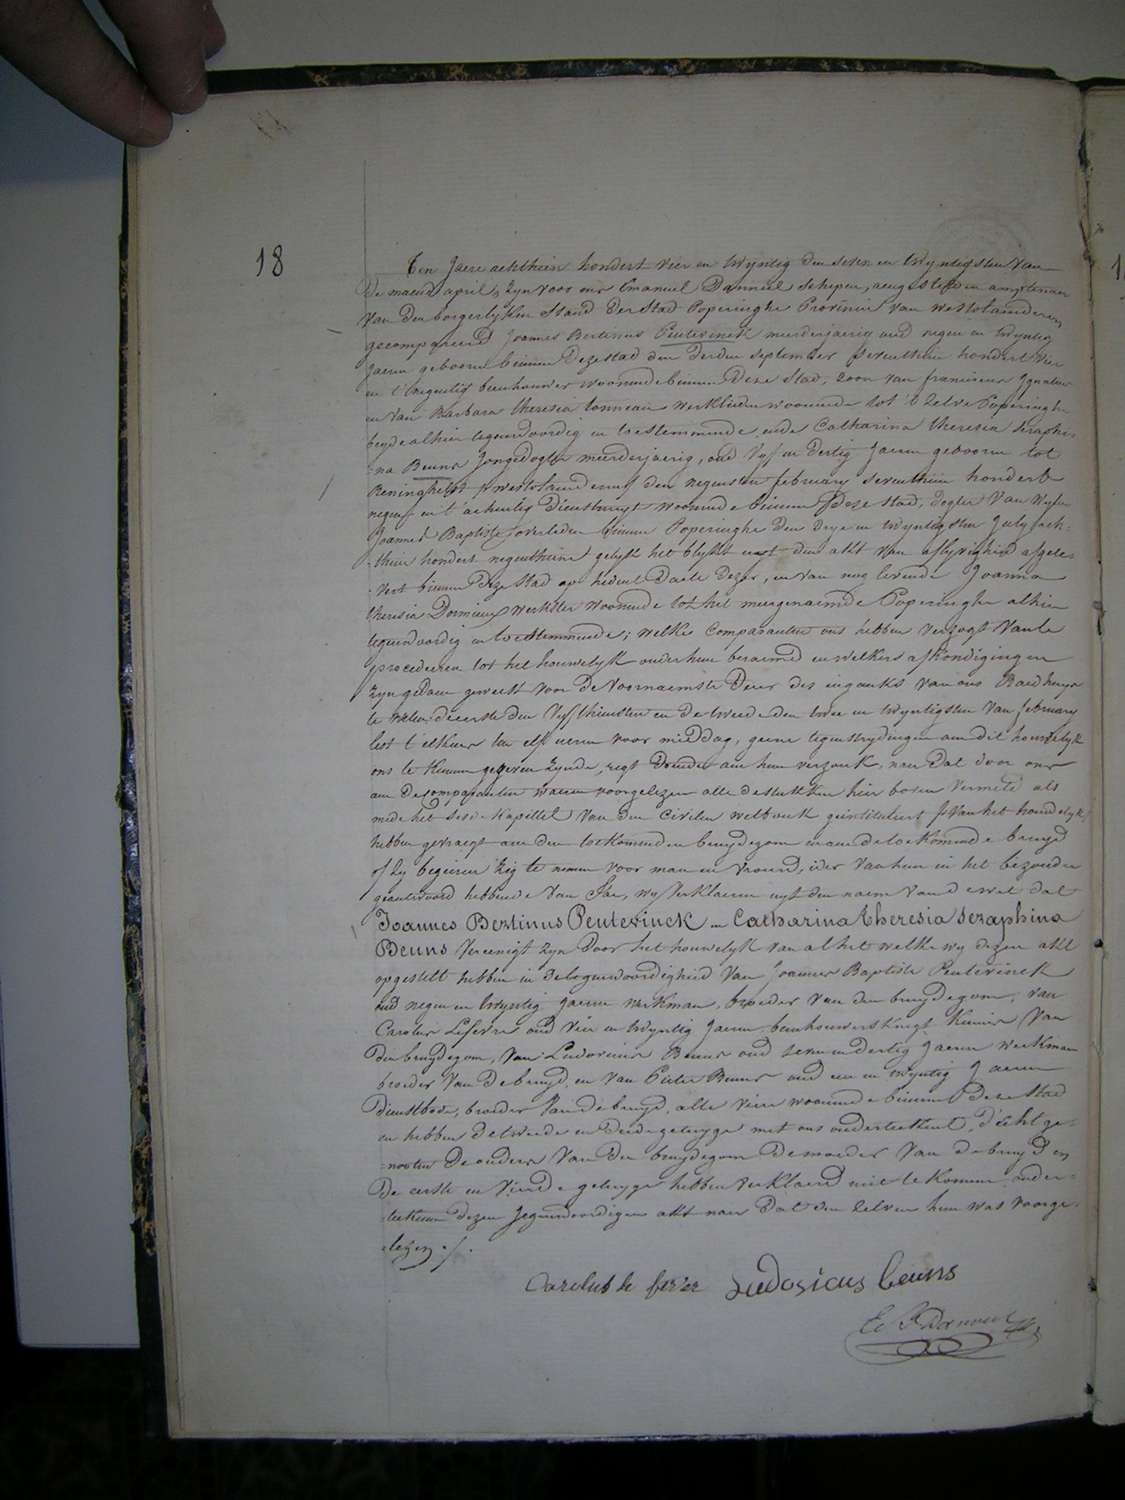 18
Ten Jaere achthien hondert vier en twyntig den seven en twyntigsten van
de maend april, zyn voor ons Emanuel Danneel Schepen, aengestelde ampteneur
van den borgerlyken Stand der Stad Poperinghe Provincie van westvlaenderen
gecompareerd Joannes Bertinus Peuterinck meerderjaerig oud negen en twyntig
Jaeren gebooren binnen deze stad den derden september seventhien hondert vier
en t'negentig beenhouwer woonende binnen deze Stad, zoon van franciscus Ignatius
en van Barbara theresia tonneau werklieden woonende tot 't zelve Poperinghe
beyde alhier tegenwoordig en toestemmende, ende Catharina theresia seraphi-
-na Beuns Jongedogter meerderjaerig, oud vyf en dertig Jaeren gebooren tot
Reninghelst westvlaenderen den negensten february seventhien hondert
negen en t'achentig dienstmeyt woonende binnen deze stad, dogter van wylen
Joannes Baptiste overleden binnen Poperinghe den drye en twyntigsten July ach-
-thien hondert negenthiene gelyk het blykt uyt den akt van aflyvigheid afgele-
-vert binnen deze Stad op heden daete dezer, en van nog levende Joanna
theresia Dormieux werkster woonende tot het meergenaemde Poperinghe alhier
tegenwoordig en toestemmende; welke comparanten ons hebben verzogt van te
procederen tot het houwelyk onder hun beraemd en welkers afkondigingen
zyn gedaen geweest voor de voornaemste deure des ingancks van ons Raedhuys
te weten: d'eerste den vyfthiensten en de tweede den twee en twyntigsten van february
lest t'elkens ten elf ueren voor middag, geene tegenstrydingen aen dit houwelyk
ons te kennen gegeven zynde, regt doende aen hun verzouk, naer dat door ons
aen de comparanten waeren voorgelezen alle de stukken hier boven vermeld als
mede het sesde kapittel van den civilen wetboek geintituleert van het houwelyk,
hebben gevraegt aen den toekomenden bruydegom en aen de toekomende bruyd
of zy begeeren zig te nemen voor man en vrouw, ider van hun in het bezonder
geantwoord hebbende van Jae, wy verklaeren uyt den naem van de wet dat
Joannes Bertinus Peuterinck en Catharina theresia seraphina
Beuns vereenigt zyn door het houwelyk van al het welke wy dezen akt
opgestelt hebben in de tegenwoordigheid van Joannes Baptiste Peuterinck
oud negen en twyntig Jaeren werkman, broeder van den bruydegom, van
Carolus Lefevre oud vier en twyntig Jaeren beenhouwersknegt kennis van
den bruydegom, van Ludovicus Beuns oud seven en dertig Jaeren werkman
broeder van de bruyd, en van Pieter Beuns oud een en twyntig Jaeren
dienstbode, broeder van de bruyd, alle viere woonende binnen deze Stad
en hebben de tweede en derde getuyge met ons onderteekent, d'echtge-
-nooten de ouders van den bruydegom de moeder van de bruyd en
de eerste en vierde getuyge hebben verklaerd niet te konnen onder-
-teekenen dezen Jegenwoordigen akt naer dat den zelven hun was voorge-
-lezen ./.
Carolus le fever Ludovicus beuns